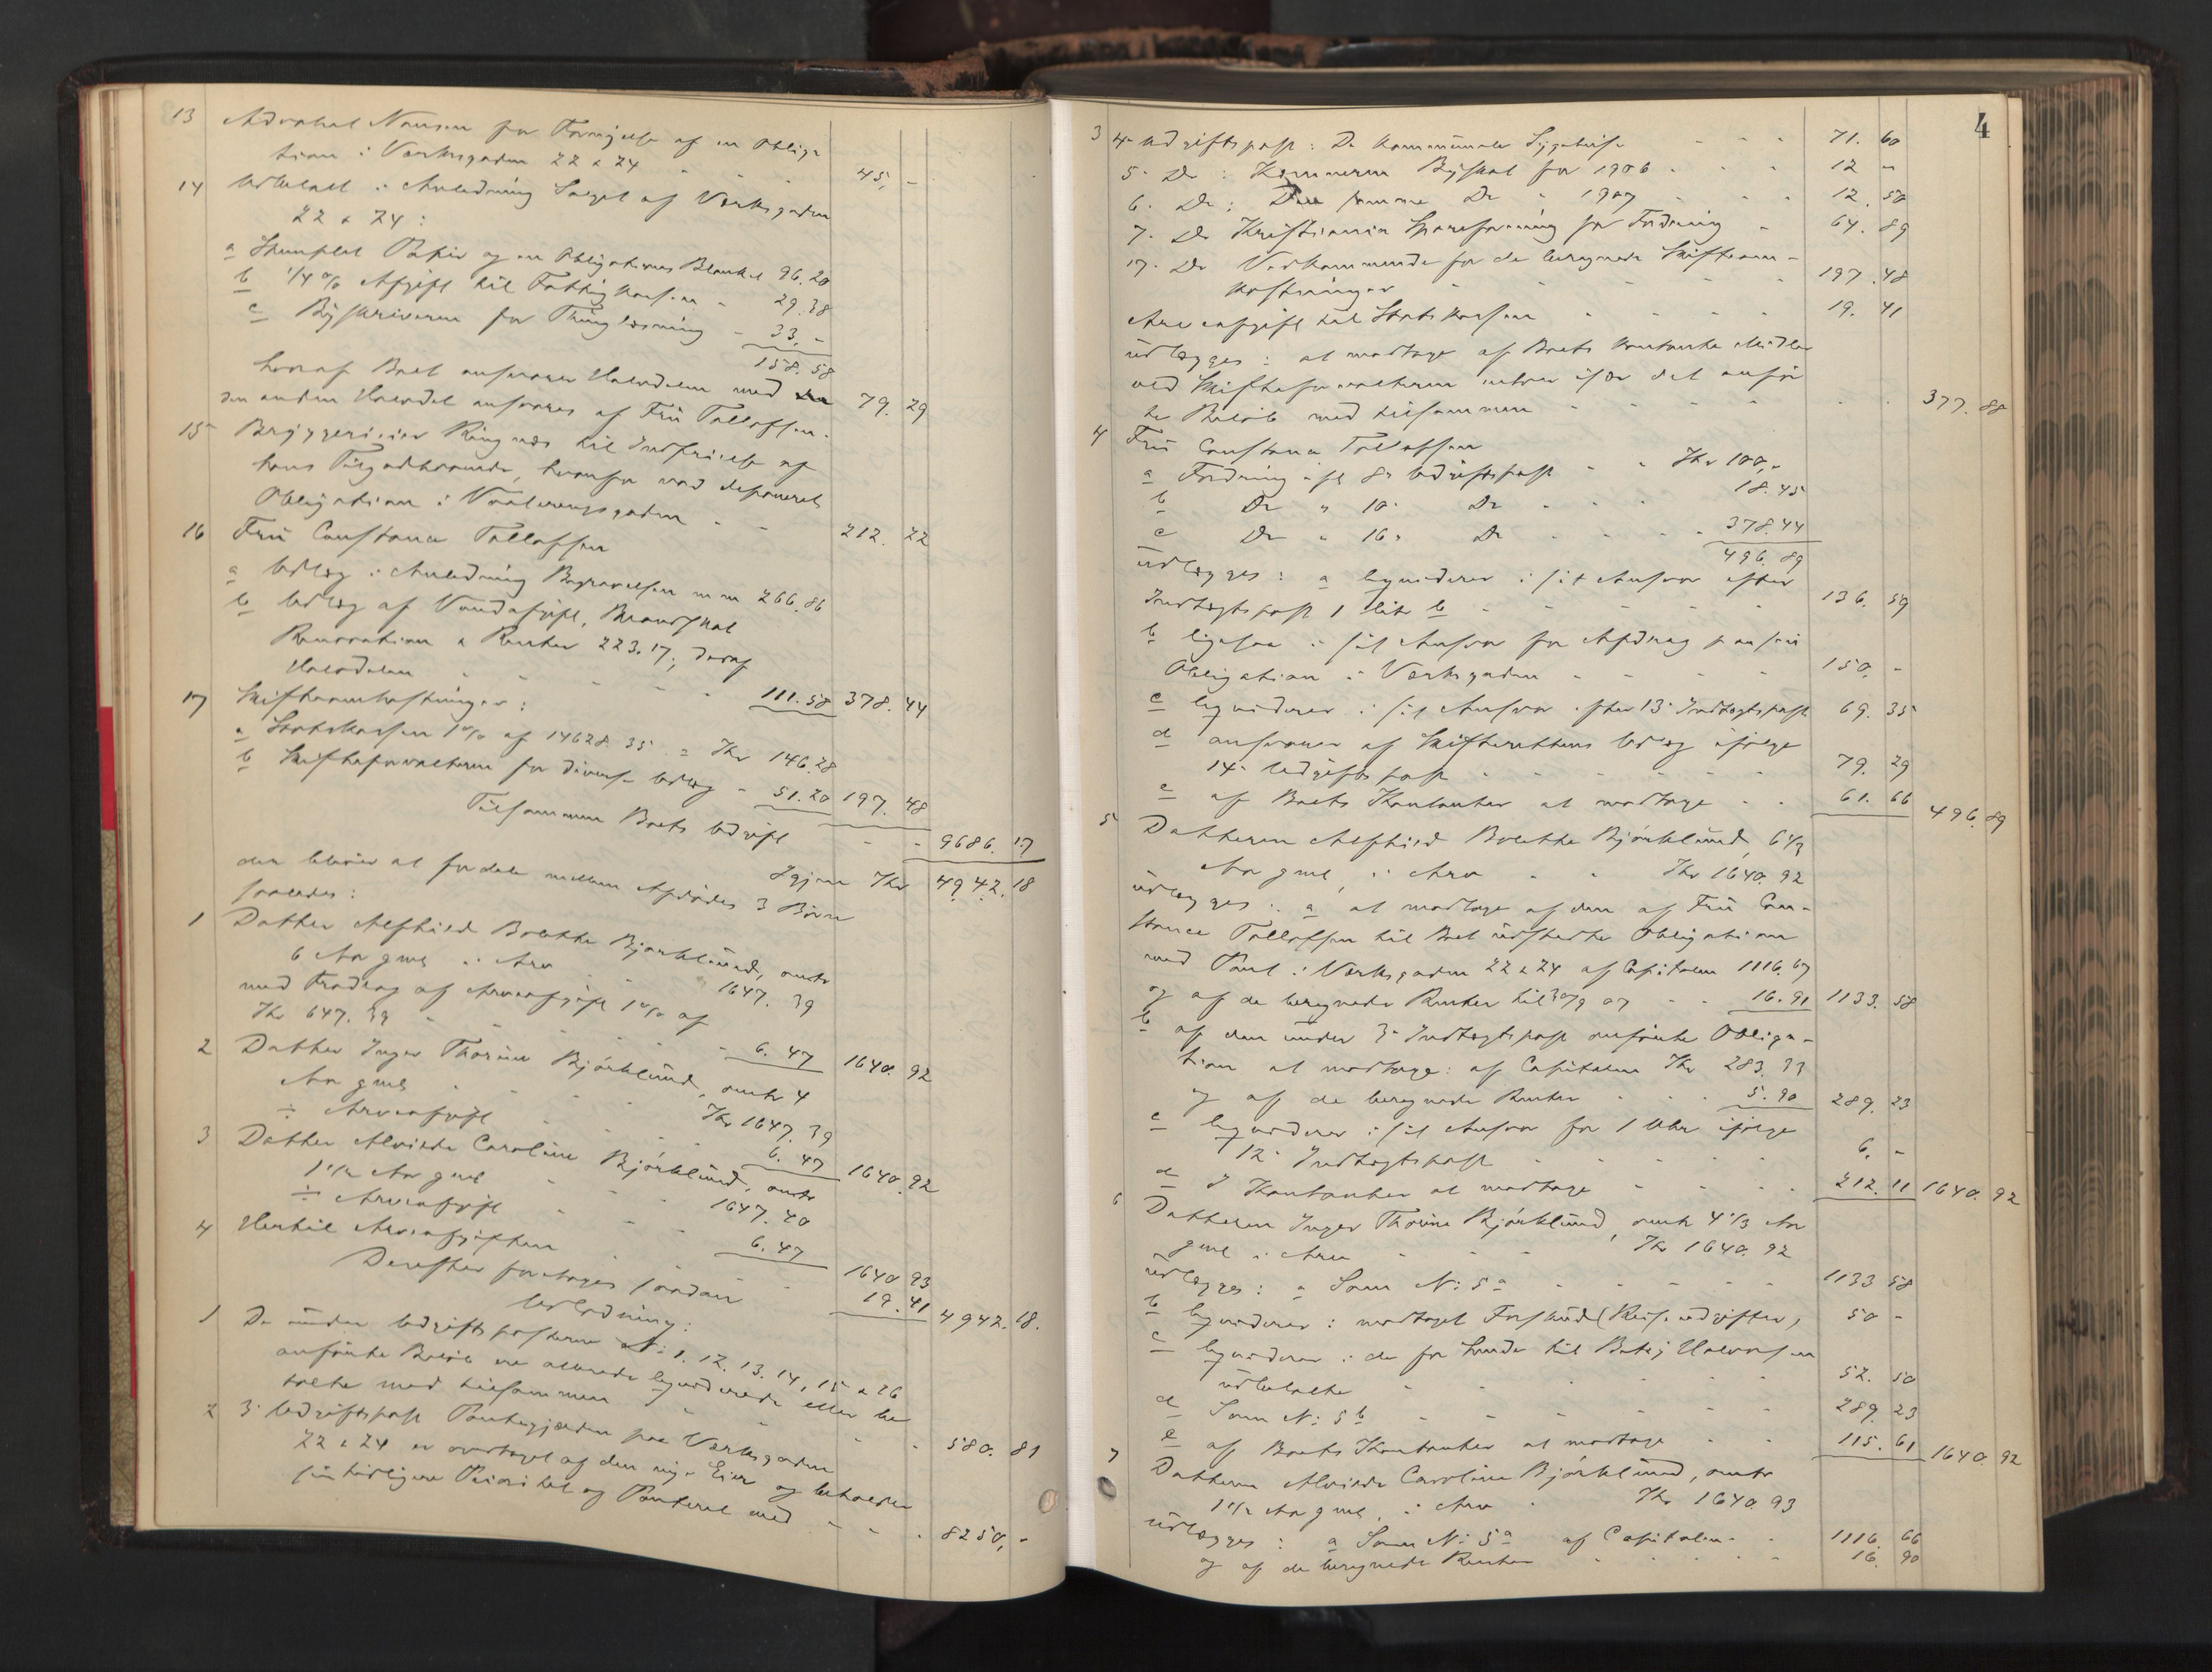 13 Advokat Nansen for Fornyelse af en Obliga-
tion i Verksgaden 22 & 24 45, -
14 Udbetalt i Anledning Salget af Verksgaden
22 & 24:
a Stemplet Papir og en Obligations Blanket 96.20
b 1/4 % Afgift til Fattigkassen - 29.38
c Byskriveren for Thinglæsning - 33, -
158. 58
hvoraf Boet ansvarer Halvdelen med 79. 29
den anden Halvdel ansvares af Frü Tollefsen.
15 Bryggerieier Ringnes til Indfrielse af
hans Tilgodehavende, hvorfor var deponeret
Obligation i Vaalerengsgaden - - 212. 22
16 Frü Constance Tollefsen
a Udlæg i Anledning Begravelsen m m 266. 86
b Udlæg af Vandafgift, Brandskat
Renovation & Renter 223.17, deraf
Halvdelen - - - - - 111. 58 378. 44
17 Skifteomkostninger:
a Statskassen 1 % af 14628. 35 = Kr 146.28
b Skifteforvalteren for diverse Udlæg - 51. 20 197. 48
Tilsammen Boets Udgift - - 9686. 17
Igjen Kr 4942. 18
der bliver at fordele mellem Afdødes 3 Børn
saaledes:
1 Datter Alfhild Bolette Bjørklünd, omtr
6 Aar gml i Arv - - 1647. 39
med Fradrag af Arveafgift 1 % af
Kr 647. 39 - - - - - 6. 47 1640. 92
2 Datter Inger Thorine Bjørklünd, omtr 4
Aar gml - - - Kr 1647. 39
÷ Arveafgift - - - - 6. 47 1640. 92
3 Datter Alvilde Caroline Bjørklünd, omtr
1 1/2 Aar gml - - - 1647. 40
÷ Arveafgift - - - - 6. 47 1640 93
4 Hertil Arveafgiften - - - 19. 41 4942. 18.
Derefter foretages saadan
Udlodning:
1 De ünder Udgiftsposterne N: 1. 12. 13. 14, 15 & 16
anførte Beløb ere allerede liqviderede eller be
talte med tilsammen - - - - 580. 81
2 3. Udgiftspost Pantegjælden paa Verksgaden
22 & 24 er overtaget af den nye Eier og beholder
sin tidligere Prioritet og Panteret med - - - 8250, -
4
3 4. Udgiftspost: De kommünale Sygehuse - - - 71. 60
5. Do: Kemneren Byskat for 1906 - - - 12 -
6. Do: Den samme Do " 1907 - - - 12. 50
7. Do Kristiania Spareforening for Fordring - 64. 89
17. Do Vedkommende for de beregnede Skifteom-
kostninger - - - - - 197. 48
Arveafgift til Statskassen - - - - 19. 41
üdlægges: at modtage af Boets kontante Midler
ved Skifteforvalteren enhver især det anfør
te Beløb med tilsammen - - - - - - 377. 88
4 Frü Constance Tollefsen
a Fordring ifl 8. Udgiftspost - - Kr 100, -
b Do " 10. Do - - - 18. 45
c Do " 16. Do - - - 378.44
496. 89
üdlægges: a liqviderer i sit Ansvar efter
Indtægtspost 1 litr b - - - - - 136. 59
b ligesaa i sit Ansvar for Afdrag paa sin
Obligation i Verksgaden - - - - 150. -
c liqviderer i sit Ansvar efter 13. Indtægtspost 69. 35
d ansvarer af Skifterettens Udlæg ifølge
14. Udgiftspost - - - - - 79. 29
e af Boets Kontanter at modtage - - 61. 66 496. 89
5 Datteren Alfhild Bolette Bjørklünd, 6 1/3
Aar gml, i Arv - - Kr 1640. 92
üdlægges: a at modtage af den af Frü Con-
stance Tollefsen til Boet üdstedte Obligation
med Pant i Verksgaden 22 & 24 af Capitalen 1116. 67
og af de beregnede Renter til 30/9 07 - - 16. 91 1133. 58
b af den ünder 3. Indtægtspost anførte Obliga-
tion at modtage: af Capitalen Kr 283. 33
og af de beregnede Renter - - 5. 90 289. 23
c liqviderer i sit Ansvar for 1 Uhr ifølge
12. Indtægtspost - - - - - 6, -
d I Kontanter at modtage - - - - 212. 11 1640. 92
6 Datteren Inger Thorine Bjørklünd, omtr 4 1/3 Aar
gml i Arv - - - Kr 1640. 92
üdlægges: a Som N: 5 a - - - - 1133 58
b liqviderer: modtaget Forskud (Reiseudgifter) 50 -
c liqviderer: de for hende til Betsy Halvorsen
üdbetalte - - - - - - 52. 50
d Som N: 5 b - - - - - 289. 23
e af Boets Kontanter at modtage - - 115. 61 1640. 92
7 Datteren Alvilde Caroline Bjørklünd, omtr
1 1/2 Aar gml, i Arv - Kr 1640. 93
üdlægges: a Som N: 5 a af Capitalen - - 1116. 66
og af de beregnede Renter - - - 16. 90